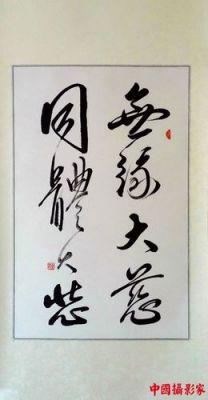 無緣大慈
同體大悲
中國攝影家